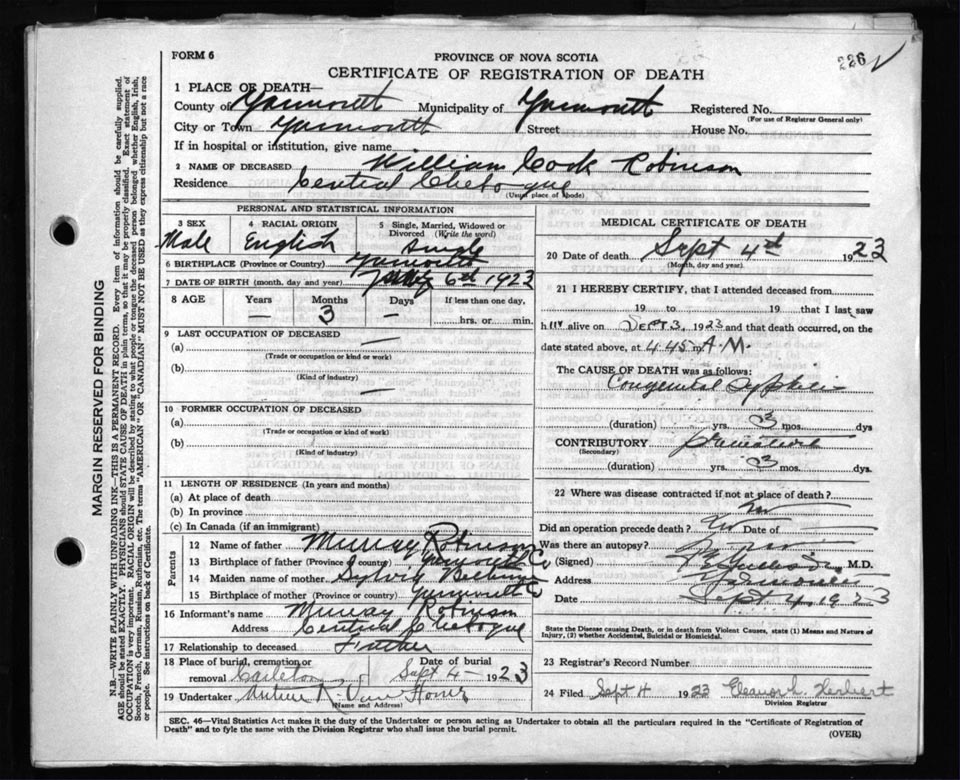 FORM 6
PROVINCE OF NOVA SCOTIA
226
CERTIFICATE OF REGISTRATION OF DEATH
1 PLACE OF DEATH—
County of Yarmouth Municipality of Yarmouth Registered No.
(For use of Registrar General only)
City or Town Yarmouth Street House No.
If in hospital or institution, give name
2 NAME OF DECEASED William Cook Robinson
Residence Central Chebogue
(Usual place of abode)
PERSONAL AND STATISTICAL INFORMATION
3 SEX Male
4 RACIAL ORIGIN English
5 Single, Married, Widowed or Divorced (Write the word) Single
6 BIRTHPLACE (Province or Country) Yarmouth
7 DATE OF BIRTH (month, day and year) 6th 1923
8 AGE Years Months Days If less than one day,
— 3 — hrs. or min.
9 LAST OCCUPATION OF DECEASED
(a) —
(Trade or occupation or kind of work)
(b)
(Kind of industry)
—
10 FORMER OCCUPATION OF DECEASED
(a)
(Trade or occupation or kind of work)
(b)
(Kind of industry)
11 LENGTH OF RESIDENCE (In years and months)
(a) At place of death
(b) In province
(c) In Canada (if an immigrant)
Parents
12 Name of father Murray Robinson
13 Birthplace of father (Province or country) Yarmouth Co
14 Maiden name of mother
15 Birthplace of mother (Province or country) Yarmouth Co
16 Informant's name Murray Robinson
Address Central Chebogue
17 Relationship to deceased Father
18 Place of burial, cremation or removal Carleton Date of burial Sept 4 - 1923
19 Undertaker Van Horne
(Name and Address)
MEDICAL CERTIFICATE OF DEATH
20 Date of death Sept 4th 1923
(Month, day and year)
21 I HEREBY CERTIFY, that I attended deceased from
19 to 19 that I last saw
h im alive on Sept 3, 1923 and that death occurred, on
date stated above, at 4.45 A.M.
The CAUSE OF DEATH was as follows:
Congenital Syphilis
(duration) yrs. 3 mos. dys
CONTRIBUTORY
(Secondary)
(duration) yrs. 3 mos. dys.
22 Where was disease contracted if not at place of death?
Did an operation precede death? No Date of
Was there an autopsy?
(Signed) M.D.
Address Yarmouth
Date Sept 4, 1923
State the Disease causing Death, or in death from Violent Causes, state (1) Means and Nature of
Injury, (2) whether Accidental, Suicidal or Homicidal.
23 Registrar's Record Number
24 Filed Sept 4 1923 Eleanor L. Herbert
Division Registrar
SEC. 46—Vital Statistics Act makes it the duty of the Undertaker or person acting as Undertaker to obtain all the particulars required in the "Certificate of Registration of
Death" and to fyle the same with the Division Registrar who shall issue the burial permit.
(OVER)
MARGIN RESERVED FOR BINDING
N.B.—WRITE PLAINLY WITH UNFADING INK—THIS IS A PERMANENT RECORD. Every item of information should be carefully supplied.
AGE should be stated EXACTLY. PHYSICIANS should STATE CAUSE OF DEATH in plain terms, so that it may be properly classified. Exact statement of
OCCUPATION is very important. RACIAL ORIGIN will be described by stating to what people or tongue the deceased person belonged whether English, Irish,
Scotch, French, German, Russian, Ruthenian, etc. The terms "AMERICAN" OR "CANADIAN" MUST NOT BE USED as they express citizenship but not a race
or people. See instructions on back of Certificate.